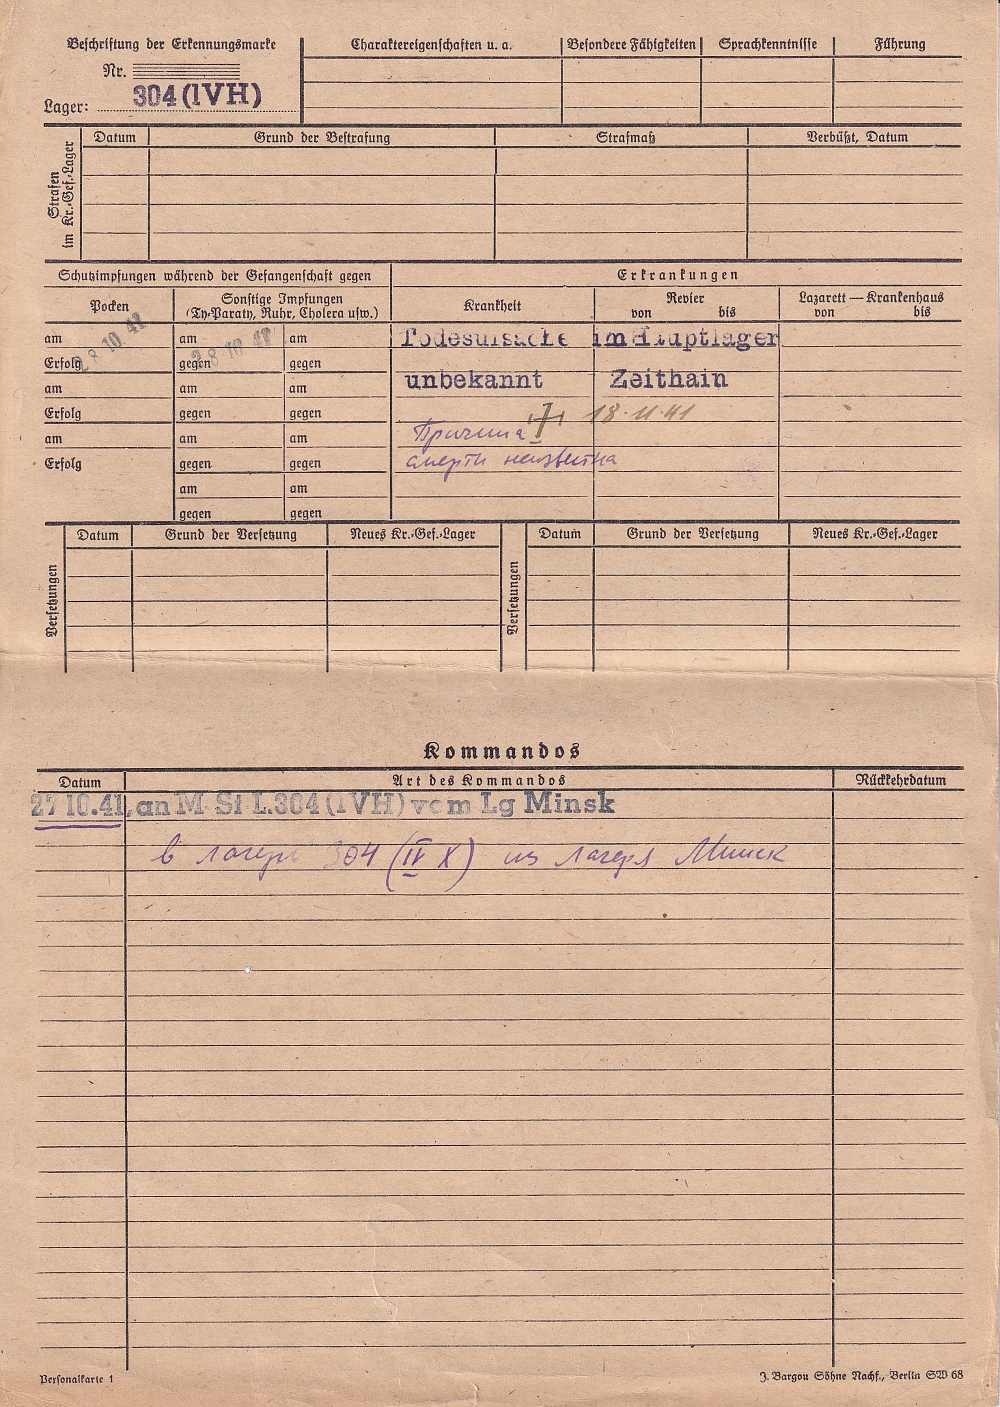 Beschriftung der Erkennungsmarke
Nr.
Lager: 304 (IVH)
Charaktereigenschaften u. a. Besondere Fähigkeiten Sprachkenntnisse Führung
Strafen im Kr.-Gef.-Lager
Datum Grund der Bestrafung Strafmaß Verbüßt, Datum
Schutzimpfungen während der Gefangenschaft gegen
Erkrankungen
Pocken
Sonstige Impfungen
(Ty-Paraty, Ruhr, Cholera usw.)
Krankheit
Revier
von bis
Lazarett — Krankenhaus
von bis
am 28 10 41 am 28 10 41 am
Erfolg gegen gegen
Todesursache im Hauptlager
am am am
unbekannt Zeithain
Erfolg gegen gegen
18.11.41
am am am
Причина
Erfolg gegen gegen
смерти неизвестна
am am
gegen gegen
Versetzungen
Datum Grund der Versetzung Neues Kr.-Gef.-Lager
Versetzungen
Datum Grund der Versetzung Neues Kr.-Gef.-Lager
Kommandos
Datum Art des Kommandos Rückkehrdatum
27 10.41, an M-St L.304 (IVH) vom Lg Minsk
в лагерь 304 (IV X) из лагеря Минск
Personalkarte 1
J. Bargou Söhne Nachf., Berlin SW 68